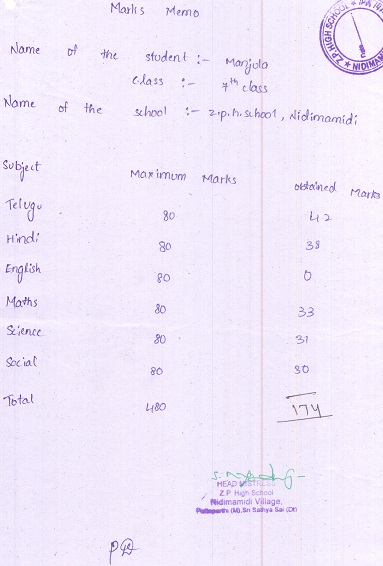 Marks Memo
Z.P HIGH SCHOOL
NIDIMAM
Name of the student :- Manjula
Class :- 7th class
Name of the school :- z.p.h.school, Nidimamidi
Subject Maximum Marks obtained Marks
Telugu 80 42
Hindi 80 38
English 80 0
Maths 80 33
Science 80 31
Social 80 30
Total 480 174
HEAD MISTRESS
Z.P High School
Nidimamidi Village,
Puttaparthi (M), Sri Sathya Sai (Dt)